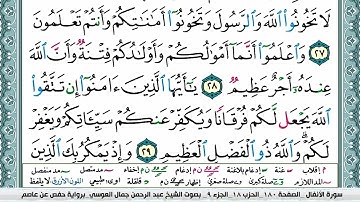 لَا تَخُونُوا۟ ٱللَّهَ وَٱلرَّسُولَ وَتَخُونُوٓا۟ أَمَٰنَٰتِكُمْ وَأَنتُمْ تَعْلَمُونَ
٢٧ وَٱعْلَمُوٓا۟ أَنَّمَآ أَمْوَٰلُكُمْ وَأَوْلَٰدُكُمْ فِتْنَةٌ وَأَنَّ ٱللَّهَ
عِندَهُۥٓ أَجْرٌ عَظِيمٌ ٢٨ يَٰٓأَيُّهَا ٱلَّذِينَ ءَامَنُوٓا۟ إِن تَتَّقُوا۟
ٱللَّهَ يَجْعَل لَّكُمْ فُرْقَانًا وَيُكَفِّرْ عَنكُمْ سَيِّـَٔاتِكُمْ وَيَغْفِرْ
لَكُمْ وَٱللَّهُ ذُو ٱلْفَضْلِ ٱلْعَظِيمِ ٢٩ وَإِذْ يَمْكُرُ بِكَ ٱلَّذِينَ
سورة الأنفال _ الصفحة ١٨٠_ الحزب ١٨_ الجزء ٩_ بصوت الشيخ عبد الرحمن جمال العوسي _ برواية حفص عن عاصم